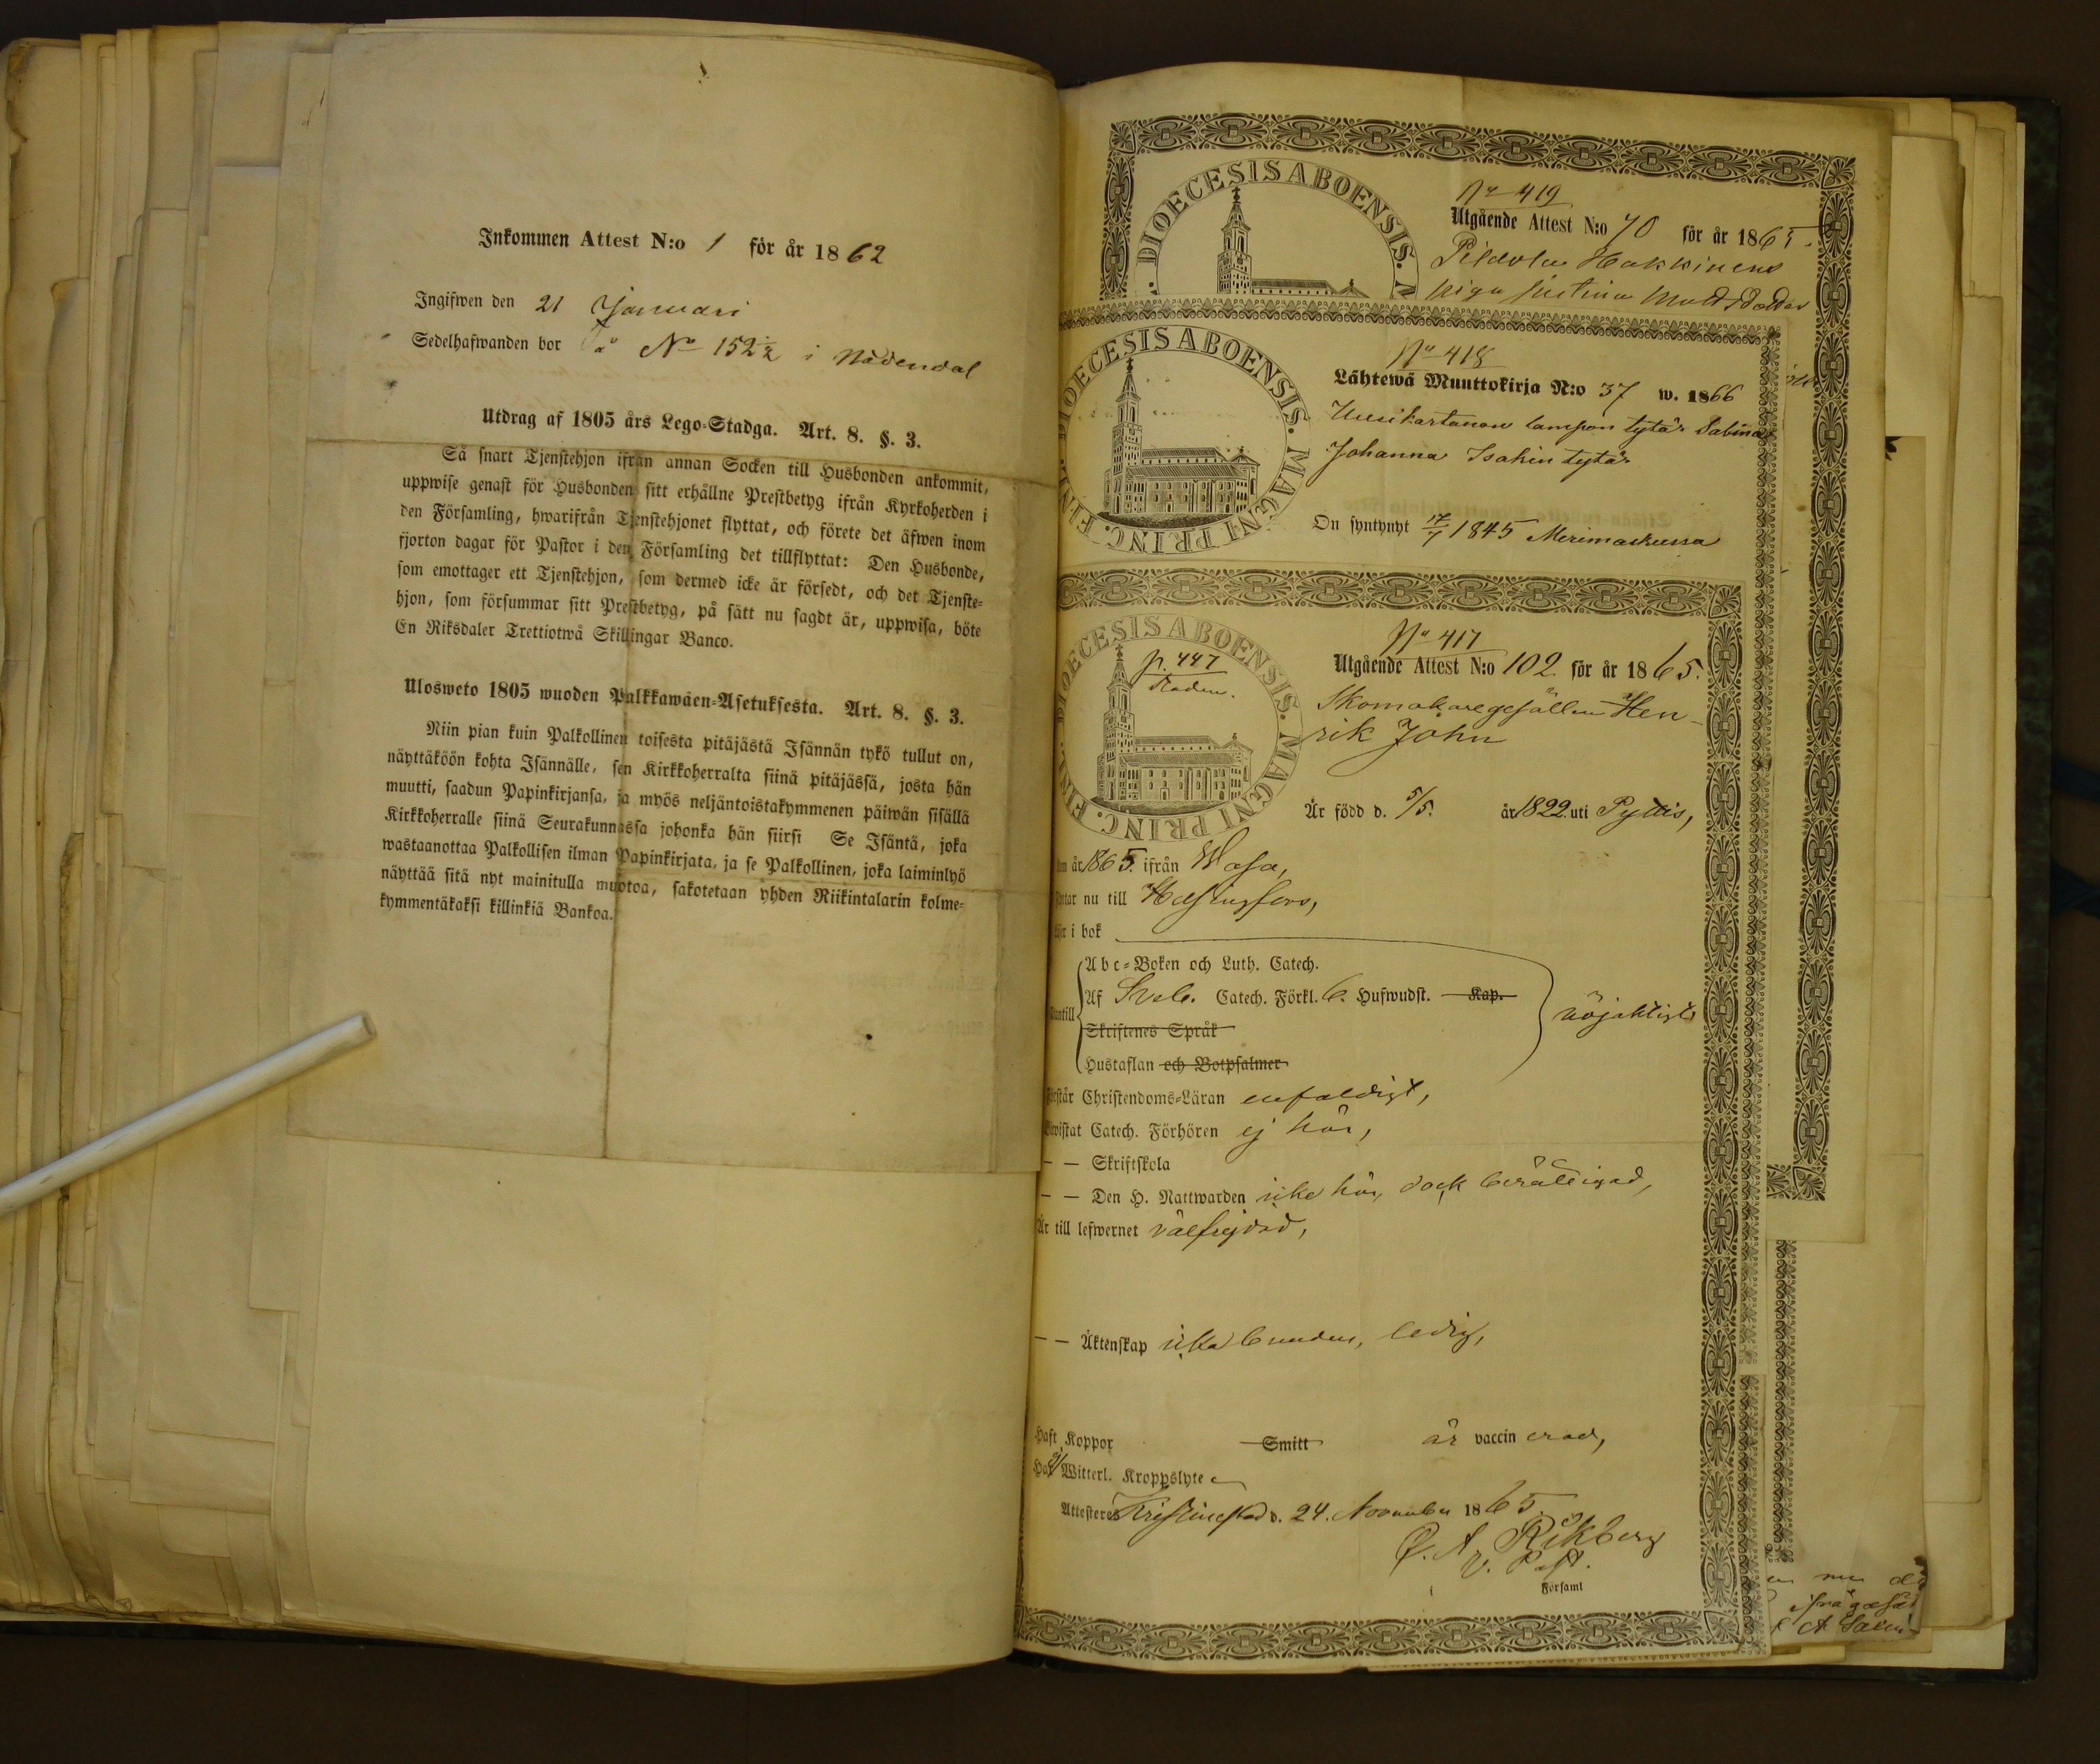 Inkommen Attest N:o 1 för år 1862
Ingifwen den 21 Januari
Sedelhafwanden bor å No 152½ i Nådendal
Utdrag af 1805 års Lego-Stadga. Art. 8. §. 3.
Så snart Tjenstehjon ifrån annan Socken till Husbonden ankommit,
uppwise genast för Husbonden sitt erhållne Prestbetyg ifrån Kyrkoherden i
den Församling, hwarifrån Tjenstehjonet flyttat, och förete det äfwen inom
fjorton dagar för Pastor i den Församling det tillflyttat: Den Husbonde,
som emottager ett Tjenstehjon, som dermed icke är försedt, och det Tjenste-
hjon, som försummar sitt Prestbetyg, på sätt nu sagdt är, uppwisa, böte
En Riksdaler Trettiotwå Skillingar Banco.
Ulosweto 1805 wuoden Palkkawäen-Asetuksesta. Art. 8. §. 3.
Niin pian kuin Palkollinen toisesta pitäjästä Isännän tykö tullut on,
näyttäköön kohta Isännälle, sen Kirkkoherralta siinä pitäjässä, josta hän
muutti, saadun Papinkirjansa, ja myös neljäntoistakymmenen päiwän sisällä
Kirkkoherralle siinä Seurakunnassa johonka hän siirsi Se Isäntä, joka
wastaanottaa Palkollisen ilman Papinkirjata, ja se Palkollinen, joka laiminlyö
näyttää sitä nyt mainitulla muotoa, sakotetaan yhden Riikintalarin kolme-
kymmentäkaksi killinkiä Bankoa.
DIOECESIS ABOENSIS. M
No 419
Utgående Attest N:o 70 för år 1865.
Hakkinens
piga Justina Mattsdotter
DIOECESIS ABOENSIS. MAGNI PRINC. FINL.
No 418
Lähtewä Muuttokirja N:o 37 w. 1866
Uusikartanon lampon tytär Sabina
Johanna Isakin tytär
On syntynyt 17/7 1845 Merimaskussa
DIOECESIS ABOENSIS. MAGNI PRINC. FINL.
p. 447
No 417
Utgående Attest N:o 102. för år 1865.
Skomakaregesällen Hen-
rik John
Är född d. 5/5. år 1822 uti Pyttis,
år 1865. ifrån Wasa,
nu till Helsingfors,
i bok
Abc-Boken och Luth. Catech.
Af Sveb. Catech. Förkl. 6. Hufwudst. Kap.
Skriftenes Språk
Hustaflan och Botpsalmer
nöjaktigt
Förstår Christendoms-Läran enfaldigt,
Catech. Förhören ej här,
— — Skriftskola
— — Den H. Nattwarden icke här, dock berättigad,
Är till lefwernet välfrejdad,
— — Äktenskap icke bunden, ledig,
Haft Koppor Smitt är vaccinerad,
Har ej Witterl. Kroppslyte
Attesteras Kristinestad d. 24. November 1865.
Rikberg
V. Past.
Församl